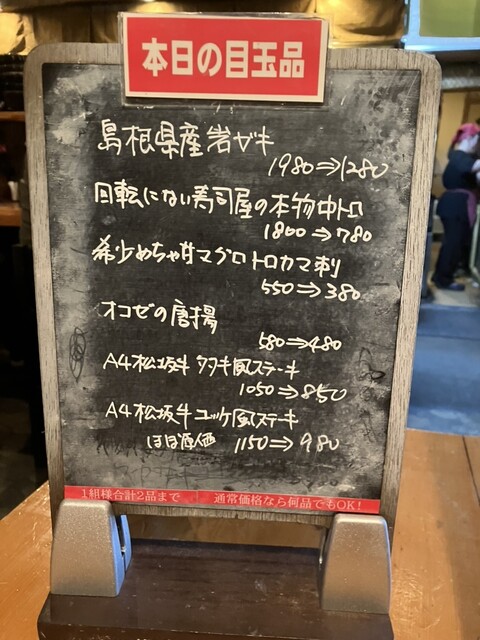 本日の目玉品
島根県産岩ガキ
1980⇒1280
回転にない寿司屋の本物中トロ
1800⇒780
希少めちゃ甘マグロトロカマ刺
550⇒380
オコゼの唐揚
580⇒480
A4松坂牛タタキ風ステーキ
1050⇒850
A4松坂牛ユッケ風ステーキ
ほぼ原価 1150⇒980
1組様合計2品まで 通常価格なら何品でもOK!